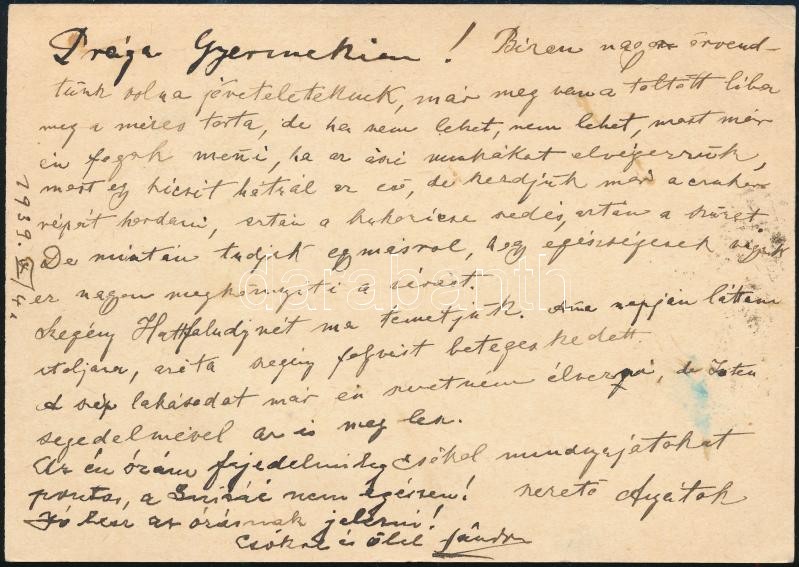 Drága Gyermekim! Bizon nagon örvend-
tünk volna jöveteleteknek, már meg van a töltött liba
meg a mézes torta, de ha nem lehet, nem lehet, most már
én fogok menni, ha az őszi munkákat elvégezzük,
most egy kicsit hátrál az eső, de kezdjük már a cukor
répát hordani, aztán a kukoricza szedés, aztán a szüret.
De miután tudjuk egymásrol, hogy egészségesek vagyunk
ez nagon megkönyiti a
Szegény Hatfaludynét ma temetjük. Ana napján láttam
utoljára, azóta szegény folyvást betegeskedett
A szép lakásodat már én szeretném élvezni, de Isten
segedelmével az is meg lesz.
Az én órám fejedelmileg csókol mindnyájatokat
pontos, a nem egészen! szerető Anyátok
Jó lesz az órásnak jelezni!
Csókol és ölel Sándor
1939. IX/4.
darabanth